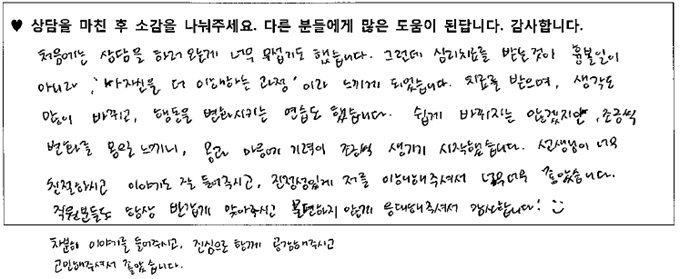 ♥ 상담을 마친 후 소감을 나눠주세요. 다른 분들에게 많은 도움이 된답니다. 감사합니다.
처음에는 상담을 하러 오는게 너무 무섭기도 했습니다. 그런데 심리치료를 받는것이 흉볼일이
아니라, '나 자신을 더 이해하는 과정' 이라 느끼게 되었습니다. 치료를 받으며, 생각도
많이 바뀌고, 행동을 변화시키는 연습도 했습니다. 쉽게 바뀌지는 않겠지만, 조금씩
변화를 몸으로 느끼니, 몸과 마음에 기력이 조금씩 생기기 시작했습니다. 선생님이 너무
친절하시고 이야기도 잘 들어주시고, 진정성있게 저를 이해해주셔서 너무너무 좋았습니다.
직원분들도 항상 반갑게 맞아주시고 불편하지 않게 응대해주셔서 감사합니다!
차분히 이야기를 들어주시고, 진심으로 함께 공감해주시고
고민해주셔서 좋았습니다.